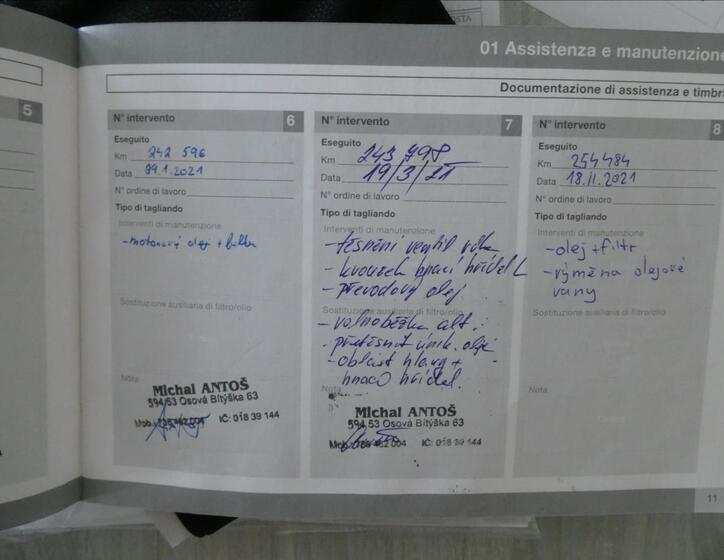 OSTA
01 Assistenza e manutenzione
Documentazione di assistenza e timbri
5
N° intervento 6
Eseguito
Km 242 596
Data 29.1.2021
N° ordine di lavoro
Tipo di tagliando
Interventi di manutenzione
- motorový olej + filtr
Sostituzione ausiliaria di filtro/olio
Nota
Michal ANTOŠ
594 53 Osová Bítýška 63
IČ: 018 39 144
N° intervento 7
Eseguito
Km 243 798
Data 19/3/21
N° ordine di lavoro
Tipo di tagliando
Interventi di manutenzione
- těsnění ventil víka
- kroužek hnací hřídel L
- převodový olej
Sostituzione ausiliaria di filtro/olio
- volnoběžka alt.
- přetěsnit únik. oleje
- oblast hlavy +
hnací hřídel.
Nota
Michal ANTOŠ
594 53 Osová Bítýška 63
IČ: 018 39 144
N° intervento 8
Eseguito
Km 254484
Data 18.11.2021
N° ordine di lavoro
Tipo di tagliando
Interventi di manutenzione
- olej + filtr
- výměna olejové
vany
Sostituzione ausiliaria di filtro/olio
Nota
11